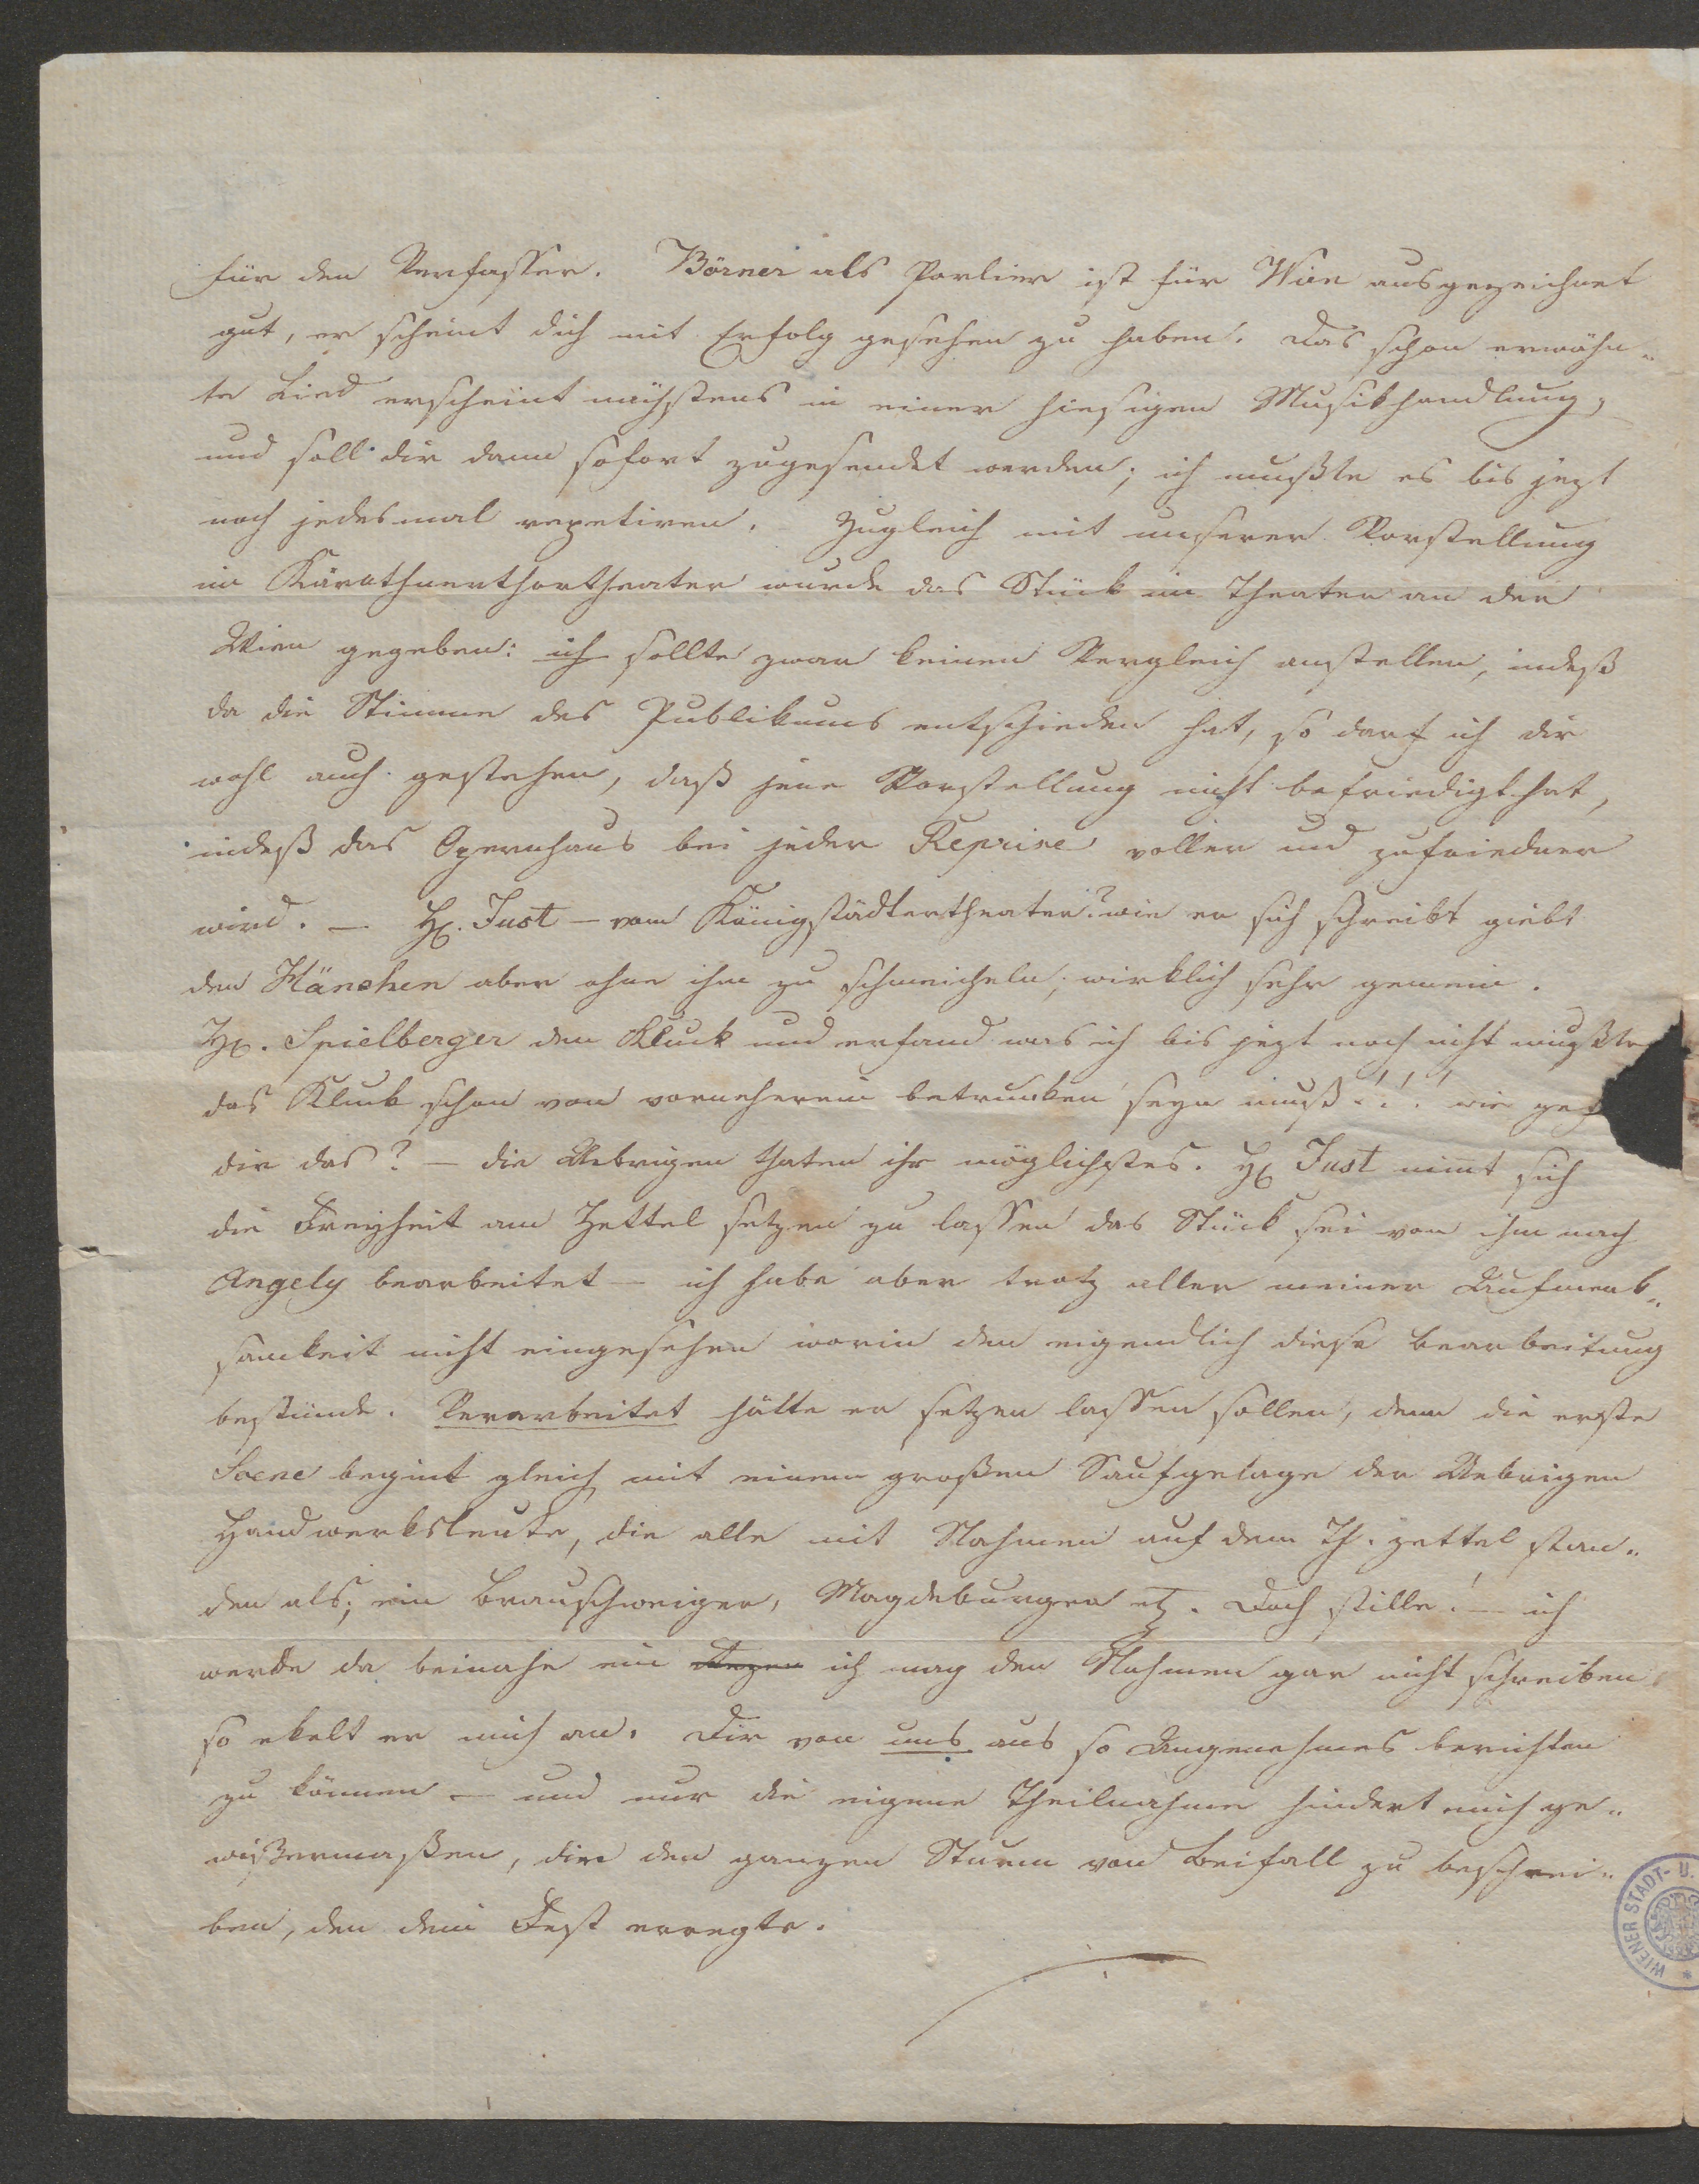 für den Verfasser. Börner als Polier ist für Wien ausgezeichnet
gut, er scheint dich mit Erfolg gesehen zu haben. Das schon erwähn„
te Lied erscheint nächstens in einer hiesigen Musikhandlung,
und soll dir dann sofort zugesendet werden; ich mußte es bis jezt
noch jedesmal repetiren. Zugleich mit unserer Vorstellung
im Kärnthnerthortheater wurde das Stück im Theater an der
Wien gegeben: ich sollte zwar keinen Vergleich anstellen, indeß
da die Stimme des Publikums entschieden hat, so darf ich dir
wohl auch gestehen, daß jene Vorstellung nicht befriedigt hat,
indeß das Opernhaus bei jeder Reprise voller und zufriedner
wird. — H. Just – vom Königstädtertheater? wie er sich schreibt giebt
den Hänchen aber ohne ihm zu schmeicheln, wirklich sehr gemein.
H. Spielberger den Kluck und erfand was ich bis jezt noch nicht wußte
das Kluck schon von vorneherein betrunken seyn muß!!! wie
dir das? — die Uebrigen thaten ihr möglichstes. H. Just nimt sich
die Freyheit am Zettel setzen zu lassen das Stück sei von ihm nach
Angely bearbeitet — ich habe aber trotz aller meiner Aufmerk„
samkeit nicht eingesehen worin den eigendlich diese Bearbeitung
bestünde. Verarbeitet hätte er setzen lassen sollen, denn die erste
Scene begint gleich mit einem großen Saufgelage der Uebrigen
Handwerksleute, die alle mit Nahmen auf dem Th. zettel stan„
den als; ein Braunschweiger, Magdeburger etz. Doch stille! — ich
werde da beinahe ein ich mag den Nahmen gar nicht schreiben
so ekelt er mich an. Dir von uns aus so Angenehmes berichten
zu können — und nur die eigene Theilnahme hindert mich ge„
wißermaßen, dir den ganzen Sturm von Beifall zu beschrei„
ben, den dein Fest erregte.
WIENER STADT- U.